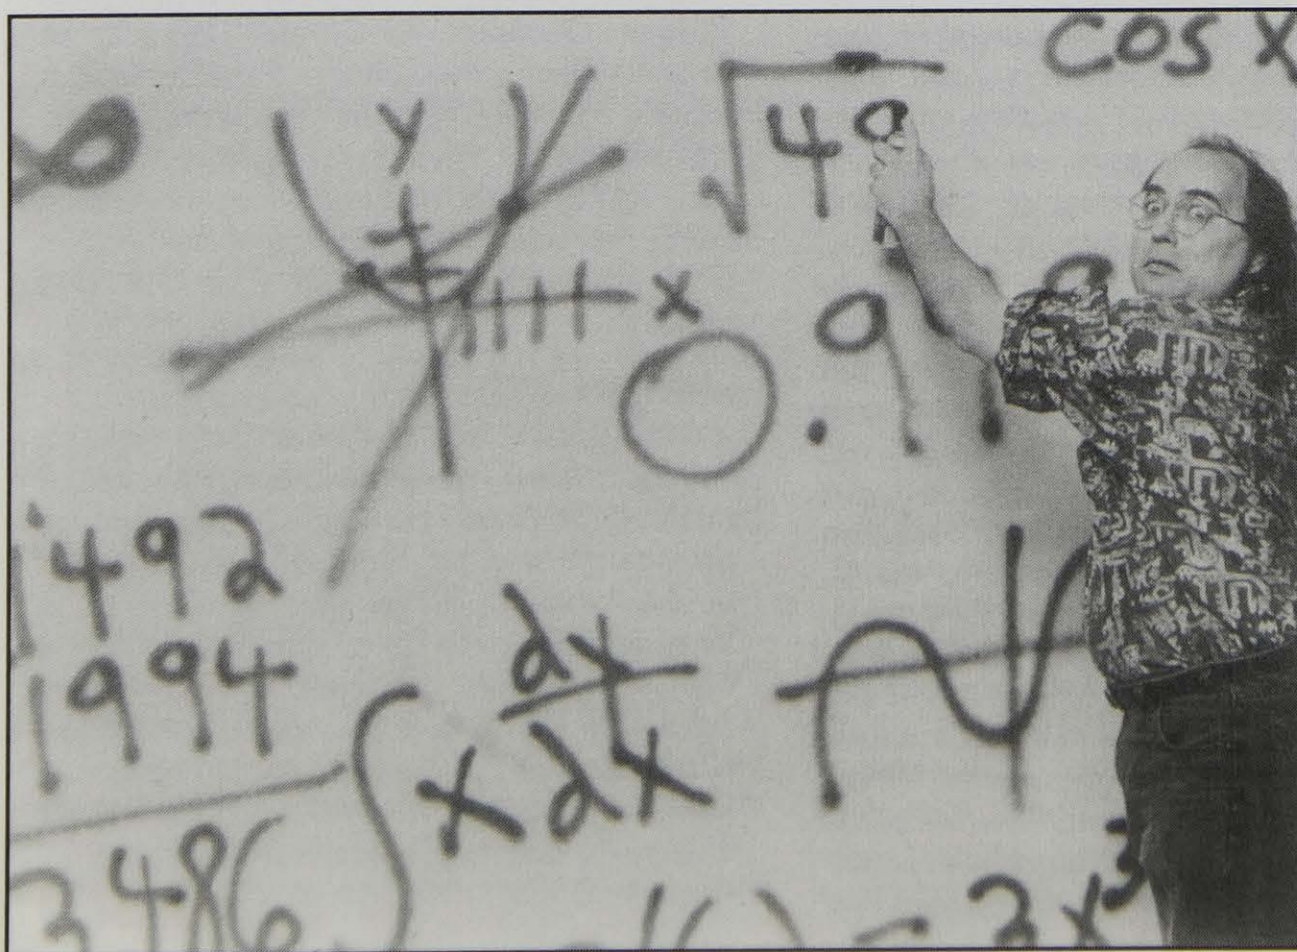 cos x
∞
y
√49
x
0.9
1492
1994
3486
∫ x dy/dx
= 3x³